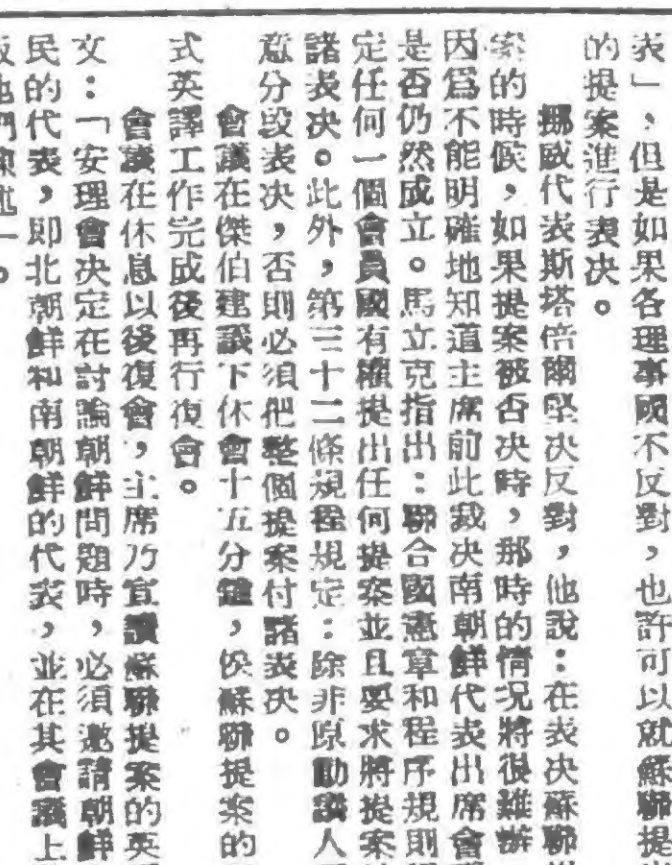 表」，但是如果各理事國不反對，也許可以就蘇聯提
的提案進行表決。
挪威代表斯塔倍爾堅決反對，他說：在表決蘇聯
案的時候，如果提案被否決時，那時的情況將很難辦
因爲不能明確地知道主席前此裁決南朝鮮代表出席會
是否仍然成立。馬立克指出：聯合國憲章和程序規則
定任何一個會員國有權提出任何提案並且要求將提案
諸表決。此外，第三十二條規程規定：除非原動議人
意分段表決，否則必須把整個提案付諸表決。
會議在傑伯建議下休會十五分鐘，俟蘇聯提案的
式英譯工作完成後再行復會。
會議在休息以後復會，主席乃宣讀蘇聯提案的英
文：「安理會決定在討論朝鮮問題時，必須邀請朝鮮
民的代表，即北朝鮮和南朝鮮的代表，並在其會議上
取他們陳述」。